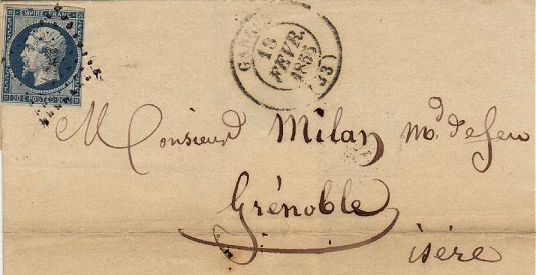 EMPIRE FRANC
20 C POSTES 20 C
18
FEVR.
1855
(33)
Monsieur Milan Md. de fer
Grénoble
isère